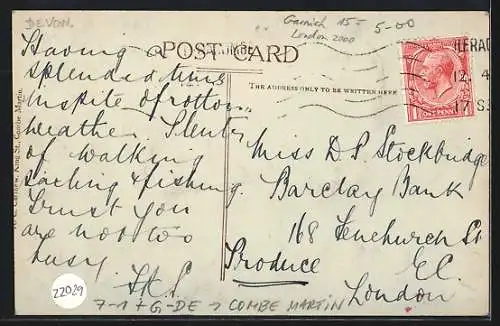 DEVON.
Garmich 15=
London 2000
5-00
POST CARD
THE ADDRESS ONLY TO BE WRITTEN HERE
Having a
splendid time
inspite of rotten
weather. Plenty
of walking
sailing & fishing.
Trust you
are not too
busy.
Miss D S Stockbridge
Barclay Bank
168 Fenchurch St
Produce
E.C.
London
ONE PENNY
12.
4
17 SE
King St., Combe Martin.
22029
7-1 + G-DE
COMBE MARTIN